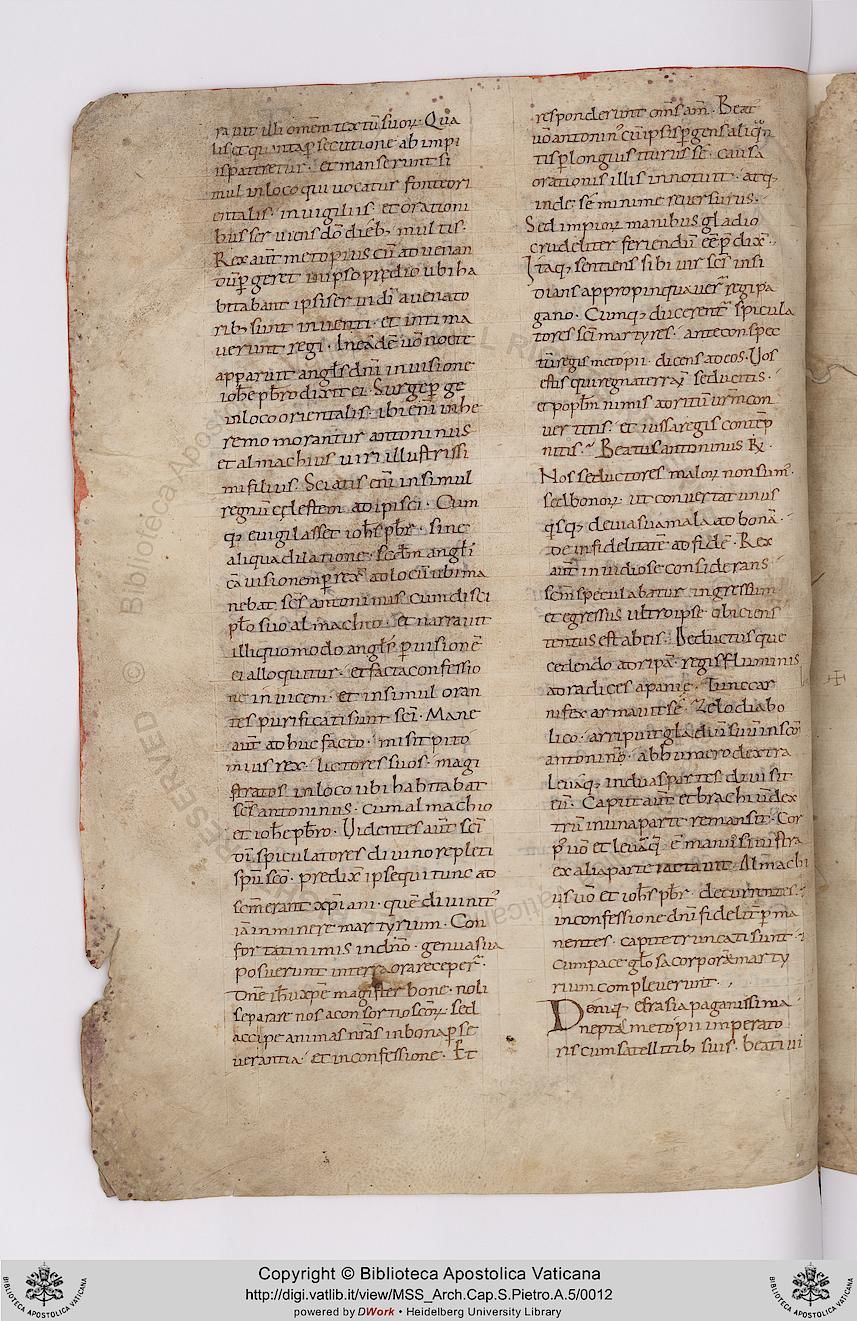 rauit illi omēm textū suoꝝ. Qua
lis et quanta p̄secutione ab impi
is pateretur. et manserunt si
mul in loco qui uocatur fonte ori
entalis. in uigiliis. et orationi
bus seruiens dō dieb; multis.
Rex aūt metopius cū ad uenan
dū p̱geret in ipso predio ubi ha
bitabant ipsi serui dī a uenato
rib; sunt inuenti. et intima
uerunt regi. In eadē uō nocte
apparuit angls dnī in uisione
iohī pb̄ro dixit ei. Surge p̱ge
in loco orientalis. ibi enī in he
remo morantur antoninus
et almachius uiri illustrissi
mi filius. Sciatis enī insimul
regnū cęlestem adipisci. Cum
q; euigilasset iohs pbr. sine
aliqua dilatione. scdm angli
eā uisionem p̱rexit ad locū ubi ma
nebat scs antoninus. cum disci
plo suo almachio. et narrauit
illi quomodo angls p̱ uisionē
ei alloquitur. et facta confessio
ne in uicem. et insimul oran
tes purificati sunt scī. Mane
aūt adhuc facto. misit pito
mius rex. lictores suos. magi
stratos. in loco ubi habitabat
scs antoninus. cum almachio
et iohe pb̄ro. Uidentes aūt scī
dī. spiculatores diuino repleti
spū scō. predixer̄ ipse qui tunc ad
secm̄ erant xp̄iani. quē diuinit᷒
iā inminere martyrium. Con
fortati nimis in dn̄o. genua sua
posuerunt in terra orare ceper̄.
Dn̄e ihū xp̄e magister bone. noli
separare nos a consortio scōꝝ. sed
accipe animas nrās in bona p̱se
uerantia. et in confessione. Et
responderunt om̄s am̄. Beat᷒
uō antonin᷒ cū ipsis p̱gens aliqn̄
tis p̱ longius iturus sē. causa
orationis illis innotuit. atq;
inde sē minime reuersurus.
Sed impioꝝ manibus gladio
crudeliter feriendū eē p̄dix̄.
Itaq; sentiens sibi uir scs insi
dians appropinquauer̄ regi pa
gano. Cunq; ducerent᷒ spicula
tores scī martyres. ante conspec
tū regis metopii. dicens ad eos. Uos
estis qui regna terraꝝ seducitis.
et poplm nimis ad ritū urm con
uertitis. et iussa regis contēp
nitis. Beatus antoninus R̄.
Nos seductores maloꝝ non sum᷒.
sed bonoꝝ. ut conuertat unus
q̄sq; de uia sua mala ad bonā.
de infidelitatē ad fidē. Rex
aūt inuidiose considerans
scm speculabatur ingressum
et egressus ultro ipse obiciens
tentus est ab eis. Deductus que
cedendo ad ripā regis fluminis
ad radices apanię. Tunc car
nifex armauit sē. Zelo diabo
lico. arripuit gladiū suū in scō
antoninō. ab humero dextra
leuāq; in duas partes diuisit
eū. Caput aūt et brachiū dex
trū in una parte remansit. Cor
p᷒ uō et leuāq; cū manu sinistra
ex alia parte iactauit. Almachi
us uō et iohs pbr. decurrentes.
in confessione dnī fideliter p̱ma
nentes. capite truncati sunt.
cum pace gl̄osa corporā marty
rium compleuerunt.
Deniq; efrasia paganissima
neptā metopii imperato
ris cum satellitib; suis. beati ui
Copyright © Biblioteca Apostolica Vaticana
http://digi.vatlib.it/view/MSS_Arch.Cap.S.Pietro.A.5/0012
powered by DWork • Heidelberg University Library